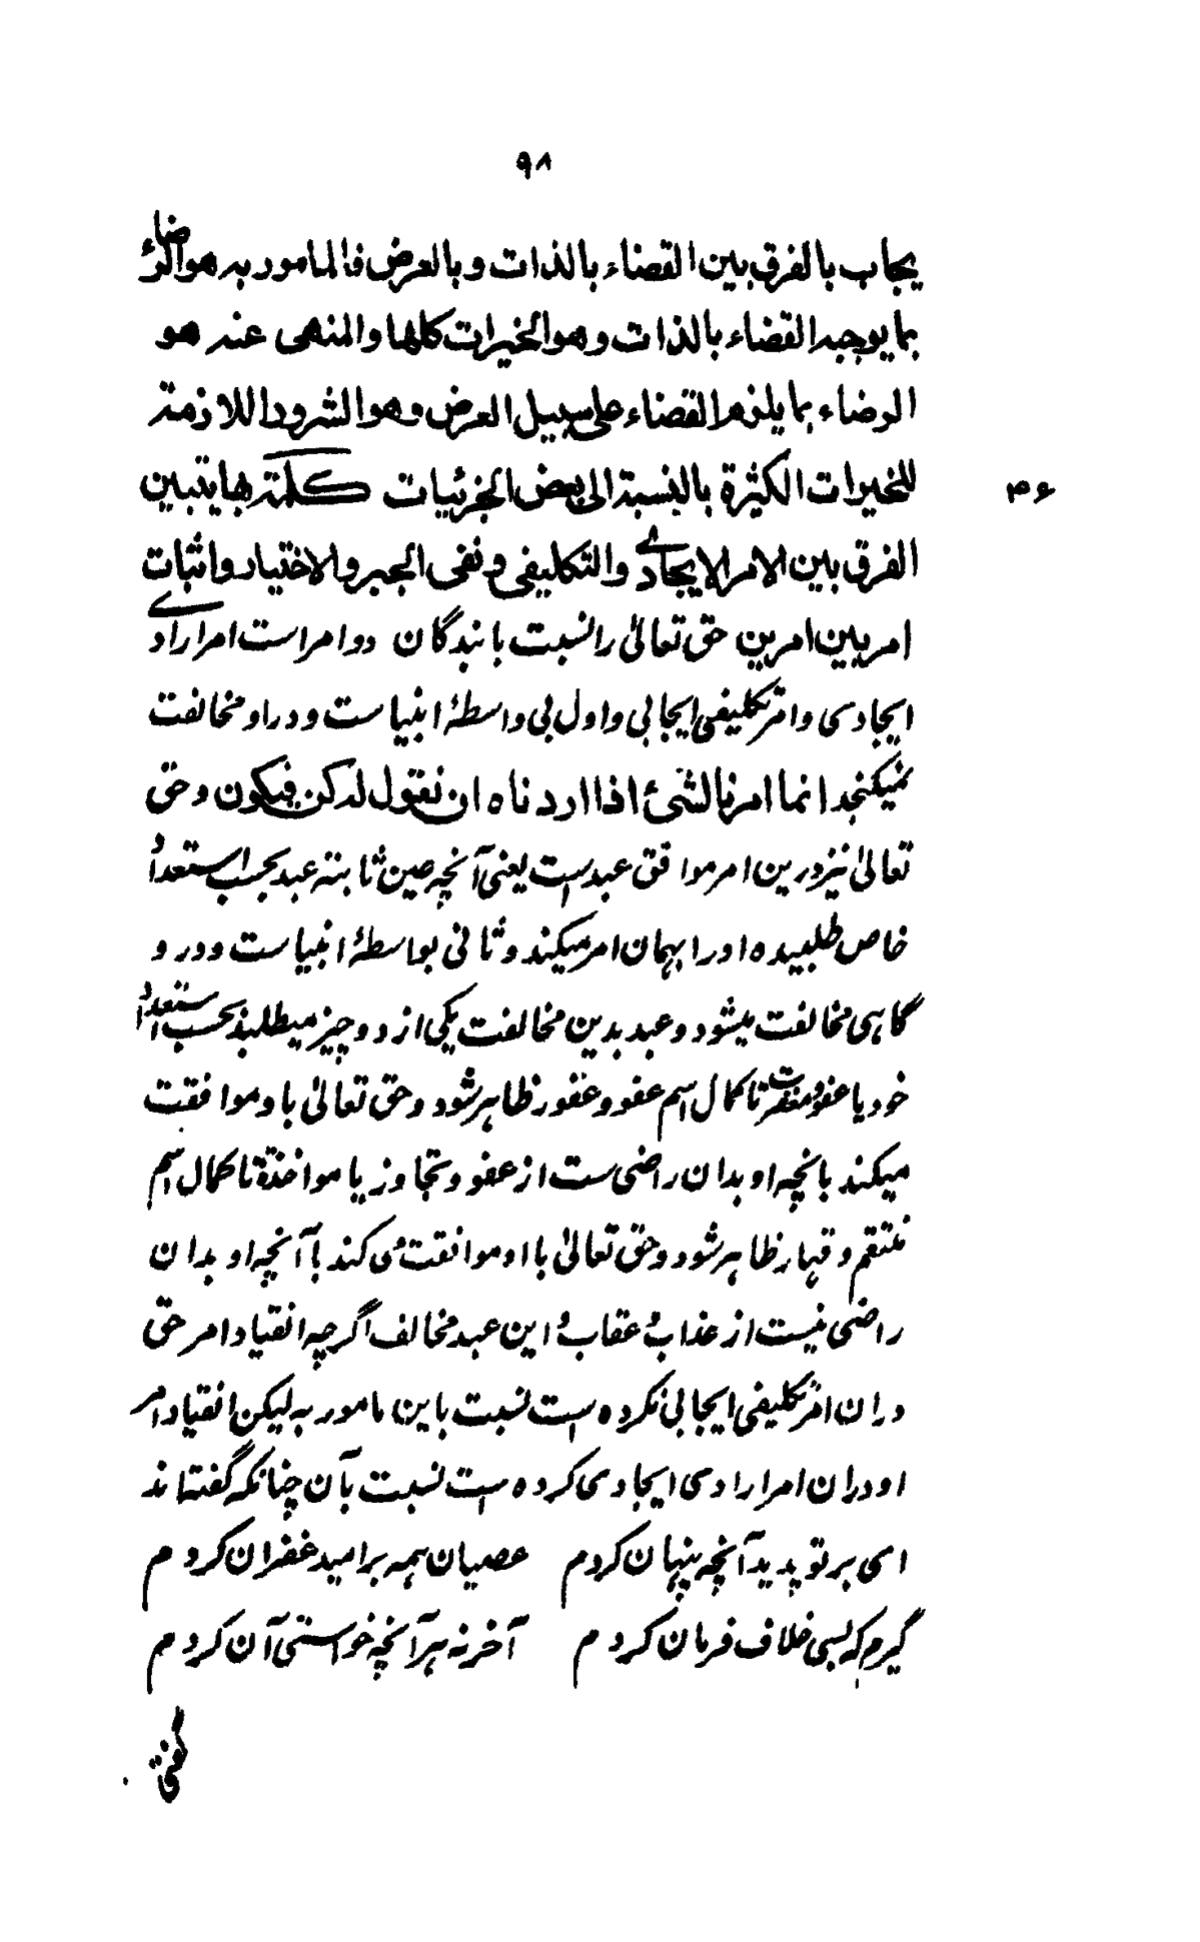 ۹۸
یجاب بالفرق بین القضاء بالذات و بالعرض فالمامور به هو الرضاء
بما یوجبه القضاء بالذات و هو الخیرات کلها و المنهی عنه هو
الرضاء بما یلزم القضاء علی سبیل العرض و هو الشرور اللازمة
للخیرات الکثیرة بالنسبة الی بعض الجزئیات کلمة بها یتبین
۴۶
الفرق بین الامر الایجادی والتکلیفی و نفی الجبر و الاختیار و اثبات
امر بین امرین حق تعالیٰ را نسبت با بندگان دو امر است امر ارادی
ایجادی و امر تکلیفی ایجابی و اول بی واسطهٔ انبیاست و در او مخالفت
نمیکنجد انما امرنا لشیٔ اذا اردناه ان نقول له کن فیکون و حق
تعالیٰ نیز درین امر موافق عبدست یعنی آنچه عین ثابته عبد بحسب استعداد
خاص طلبیده او را بهمان امر میکند و ثانی بواسطهٔ انبیاست و در و
گاهی مخالفت میشود و عبد بدین مخالفت یکی از دو چیز میطلبد بحسب استعداد
خود یا عفو و مغفرت تا کمال اسم عفو و غفور ظاهر شود و حق تعالیٰ با و موافقت
میکند بانچه او بدان راضی ست از عفو و تجاوز یا مواخذة تا کمال اسم
منتقم و قهار ظاهر شود و حق تعالیٰ با او موافقت می کند با آنچه او بدان
راضی نیست از عذاب و عقاب و این عبد مخالف اگرچه انقیاد امر حق
دران امر تکلیفی ایجابی نکرده است نسبت باین مامور به لیکن انقیاد امر
او دران امر ارادی ایجادی کرده است نسبت بآن چنانکه گفته اند
ای بر تو پدید آنچه پنهان کردم عصیان همه بر امید غفران کردم
گیرم که بسی خلاف فرمان کردم آخر نه هر آنچه خواستی آن کردم
گفتی